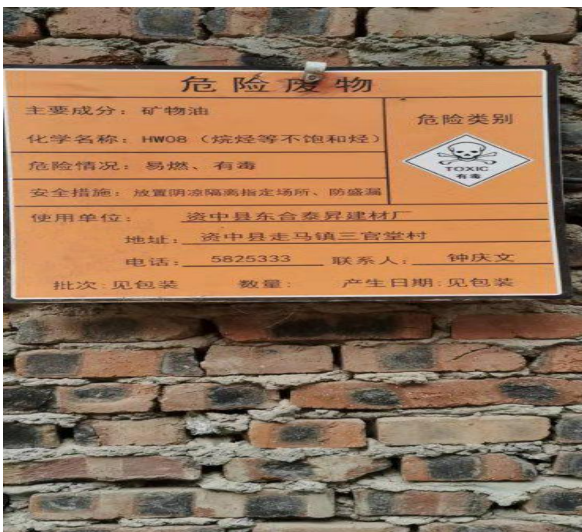 危险废物
主要成分：矿物油
化学名称：HW08（烷烃等不饱和烃）
危险情况：易燃、有毒
安全措施：放置阴凉隔离指定场所、防盛漏
危险类别
TOXIC
有毒
使用单位：资中县东合泰昇建材厂
地址：资中县走马镇三官堂村
电话：5825333 联系人：钟庆文
批次：见包装 数量： 产生日期：见包装